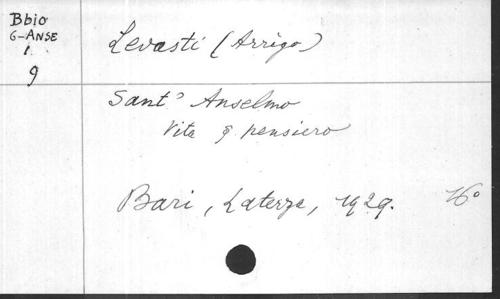 Bbio
G-ANSE
1
9
Levasti (Arrigo)
Sant' Anselmo
Vita e pensiero
Bari, Laterza, 1929. 16°